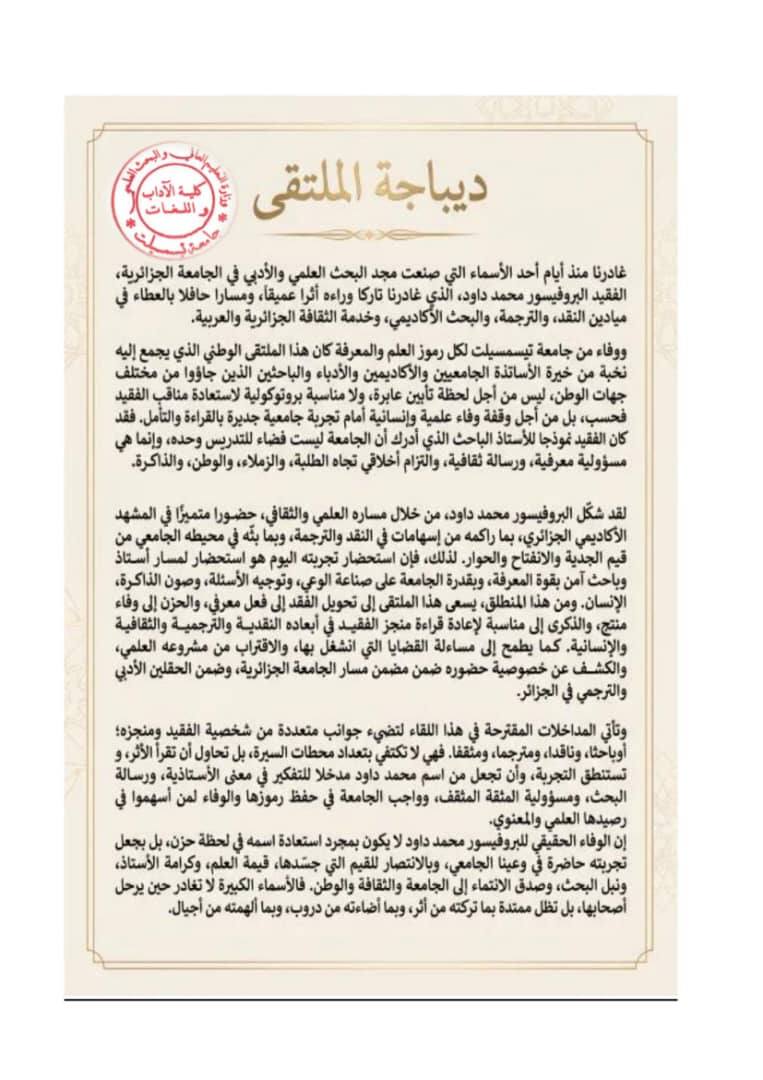 وزارة التعليم العالي و البحث العلمي
كلية الآداب
و اللغات
جامعة تيسمسيلت
ديباجة الملتقى
غادرنا منذ أيام أحد الأسماء التي صنعت مجد البحث العلمي والأدبي في الجامعة الجزائرية،
الفقيد البروفيسور محمد داود، الذي غادرنا تاركا وراءه أثرا عميقاً، ومسارا حافلا بالعطاء في
ميادين النقد، والترجمة، والبحث الأكاديمي، وخدمة الثقافة الجزائرية والعربية.
ووفاء من جامعة تيسمسيلت لكل رموز العلم والمعرفة كان هذا الملتقى الوطني الذي يجمع إليه
نخبة من خيرة الأساتذة الجامعيين والأكاديمين والأدباء والباحثين الذين جاؤوا من مختلف
جهات الوطن، ليس من أجل لحظة تأبين عابرة، ولا مناسبة بروتوكولية لاستعادة مناقب الفقيد
فحسب، بل من أجل وقفة وفاء علمية وإنسانية أمام تجربة جامعية جديرة بالقراءة والتأمل. فقد
كان الفقيد نموذجا للأستاذ الباحث الذي أدرك أن الجامعة ليست فضاء للتدريس وحده، وإنما هي
مسؤولية معرفية، ورسالة ثقافية، والتزام أخلاقي تجاه الطلبة، والزملاء، والوطن، والذاكرة.
لقد شكّل البروفيسور محمد داود، من خلال مساره العلمي والثقافي، حضورا متميزًا في المشهد
الأكاديمي الجزائري، بما راكمه من إسهامات في النقد والترجمة، وبما بثّه في محيطه الجامعي من
قيم الجدية والانفتاح والحوار. لذلك، فإن استحضار تجربته اليوم هو استحضار لمسار أستاذ
وباحث آمن بقوة المعرفة، وبقدرة الجامعة على صناعة الوعي، وتوجيه الأسئلة، وصون الذاكرة،
الإنسان. ومن هذا المنطلق، يسعى هذا الملتقى إلى تحويل الفقد إلى فعل معرفي، والحزن إلى وفاء
منتج، والذكرى إلى مناسبة لإعادة قراءة منجز الفقيد في أبعاده النقدية والترجمية والثقافية
والإنسانية. كما يطمح إلى مساءلة القضايا التي انشغل بها، والاقتراب من مشروعه العلمي،
والكشف عن خصوصية حضوره ضمن مضمن مسار الجامعة الجزائرية، وضمن الحقلين الأدبي
والترجمي في الجزائر.
وتأتي المداخلات المقترحة في هذا اللقاء لتضيء جوانب متعددة من شخصية الفقيد ومنجزه؛
أوباحثا، وناقدا، ومترجما، ومثقفا. فهي لا تكتفي بتعداد محطات السيرة، بل تحاول أن تقرأ الأثر، و
تستنطق التجربة، وأن تجعل من اسم محمد داود مدخلا للتفكير في معنى الأستاذية، ورسالة
البحث، ومسؤولية المثقة المثقف، وواجب الجامعة في حفظ رموزها والوفاء لمن أسهموا في
رصيدها العلمي والمعنوي.
إن الوفاء الحقيقي للبروفيسور محمد داود لا يكون بمجرد استعادة اسمه في لحظة حزن، بل بجعل
تجربته حاضرة في وعينا الجامعي، وبالانتصار للقيم التي جسّدها، قيمة العلم، وكرامة الأستاذ،
ونبل البحث، وصدق الانتماء إلى الجامعة والثقافة والوطن. فالأسماء الكبيرة لا تغادر حين يرحل
أصحابها، بل تظل ممتدة بما تركته من أثر، وبما أضاءته من دروب، وبما ألهمته من أجيال.